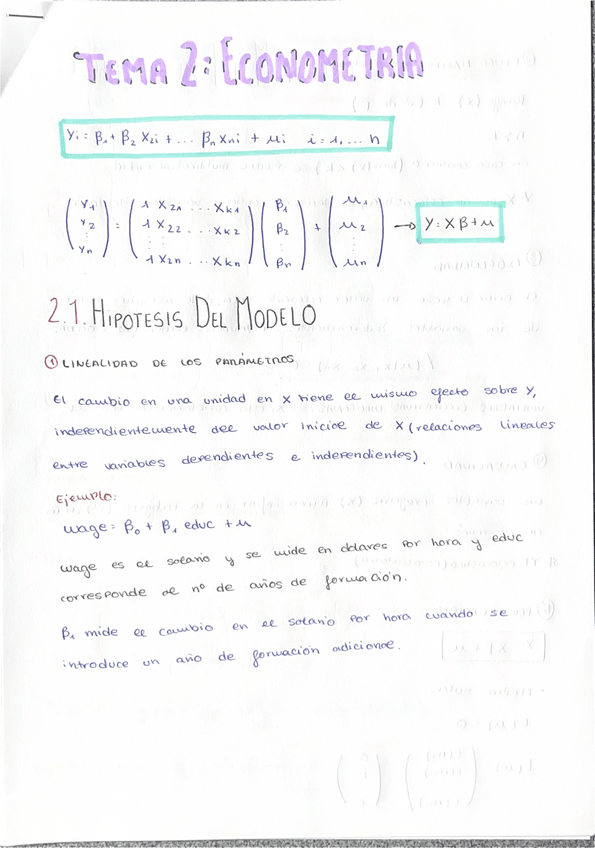 TEMA 2: ECONOMETRIA
Yi = β1 + β2 X2i + ... βn Xni + μi   i = 1, ... n
( Y1 Y2 ⋮ Yn ) = ( 1 X21 ... Xk1   1 X22 ... Xk2   ⋮   1 X2n ... Xkn ) ( β1 β2 ⋮ βn ) + ( μ1 μ2 ⋮ μn ) → Y = Xβ + μ
2.1. HIPOTESIS DEL MODELO
① LINEALIDAD DE LOS PARÁMETROS
El cambio en una unidad en X tiene el mismo efecto sobre Y,
independientemente del valor inicial de X (relaciones lineales
entre variables dependientes e independientes).
Ejemplo:
wage = β0 + β1 educ + μ
wage es el salario y se mide en dólares por hora y educ
corresponde al nº de años de formación.
β1 mide el cambio en el salario por hora cuando se
introduce un año de formación adicional.